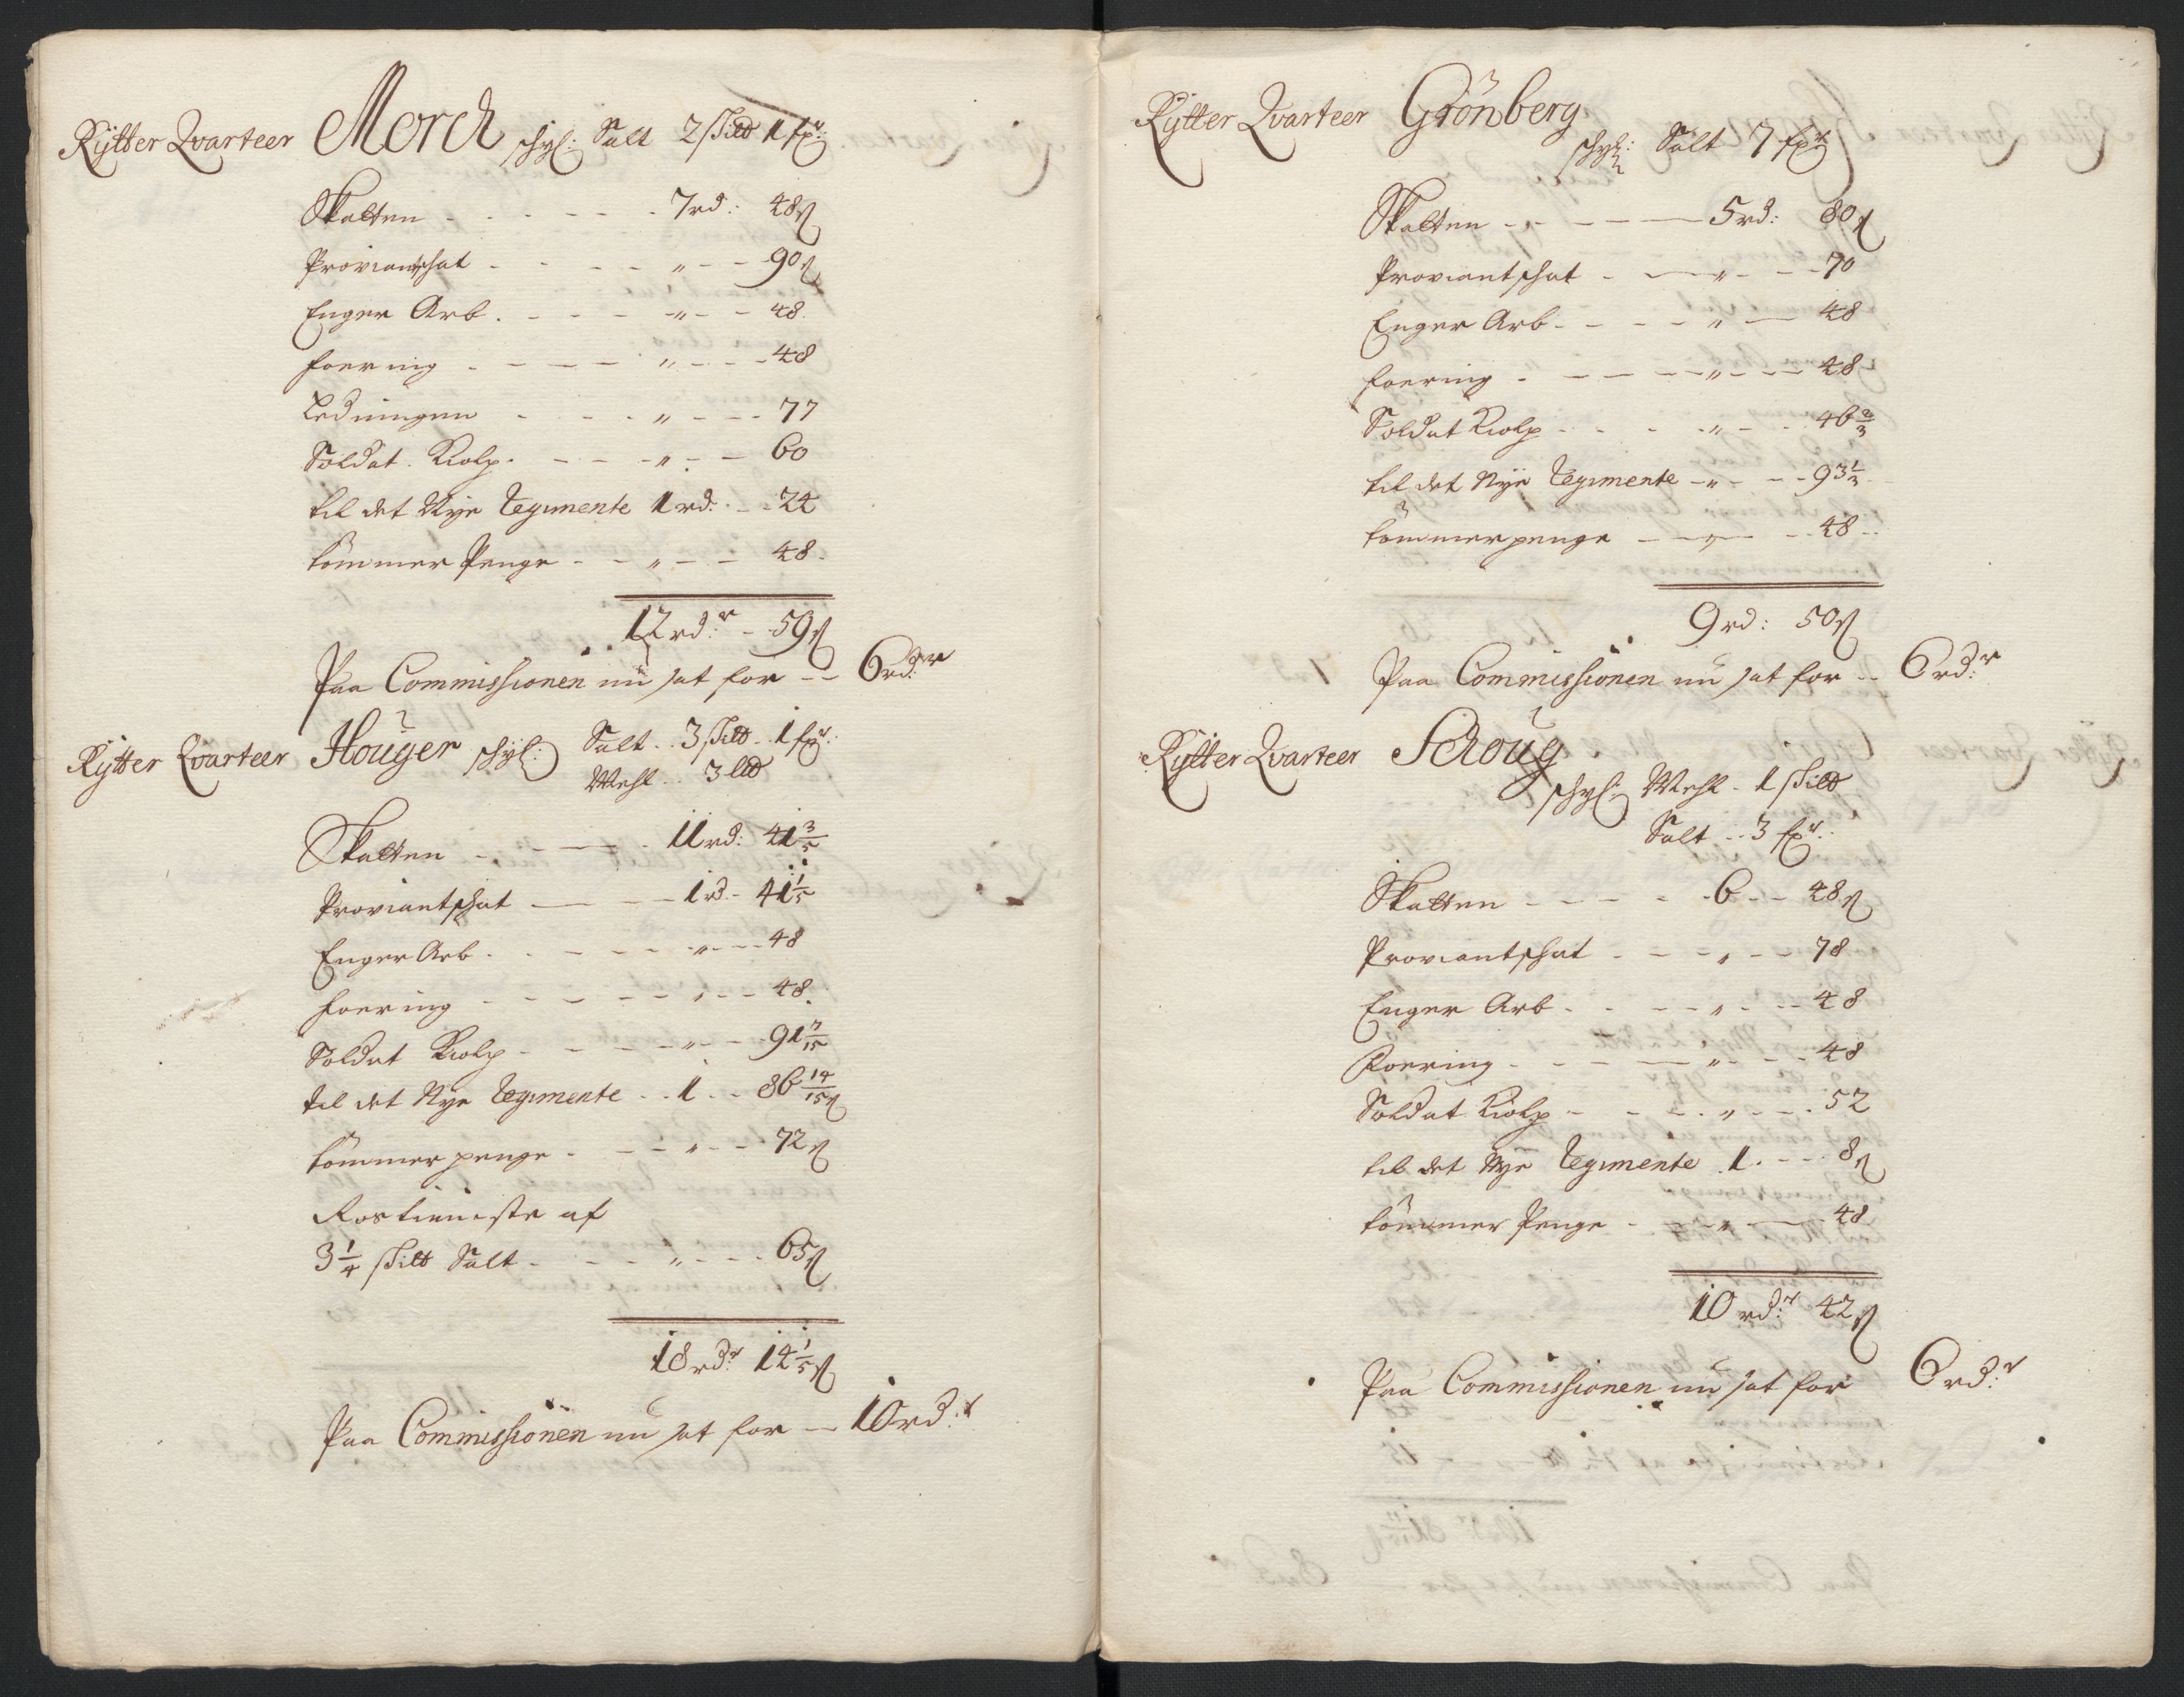 Rytter Qvarteer Morch schyl: Salt 2 skild 1 fxr:
Skatten - - - 7rd: 48ß
Proviantschat - - - „ - - 90ß
Enger Arb. - - - „ - - 48.
foering - - - „ - - 48
Ledningen - - - „ - - 77
Soldat Kolp. - - - „ - - 60
til det Nye Regimente 1 rd. - - 24
tömmer Penge - - „ - - 48.
12 rd:r - 59ß
Paa Commissionen nu sat for - - 6 rd:r
Rytter Qvarteer Houger schyl: Salt . 3 skild . 1 fxr:
Mehl . . 3 lld
Skatten - - - 11 rd: 41 3/5
Proviantschat - - - 1 rd - 41 1/5
Enger Arb. - - - „ - - 48
foering - - - „ - - 48.
Soldat Kolp - - - „ - - 91 7/15
til det Nye Regimente . . 1 . . 86 14/15 ß
tömmer penge - - - „ - - 72ß
Rostieniste af
3 1/4 skild Salt - - - „ - - 65ß
18 rd:r 14 1/5 ß
Paa Commissionen nu sat for - 10 rd:r
Rytter Qvarteer Grönberg
schyl: Salt 7 fxr
Skatten - - - 5 rd: 80ß
Proviantschat - - „ - - 70
Enger Arb - - - „ - 48
foering - - - „ - - 48
Soldat Kolp - - - „ - - 46 2/3
til det Nye Regimente - „ - - 93 1/3
tömmerpenge - - „ - - 48 -
9 rd: 50ß
Paa Commissionen nu sat for - - 6 rd:r
Rytter Qvarteer Schoug
schyl: Mehl - 1 skild
Salt - - 3 fxr:
Skatten - - - 6 - - 48ß
Proviantschat - - - „ - - 78
Enger Arb - - - „ - - 48
Foering - - - „ - - 48
Soldat Kolp - - - „ - - 52
til det Nye Regimente 1 . - - 8ß
tömmer Penge - - „ - - 48
10 rd:r 42ß
Paa Commissionen nu sat for 6 rd:r